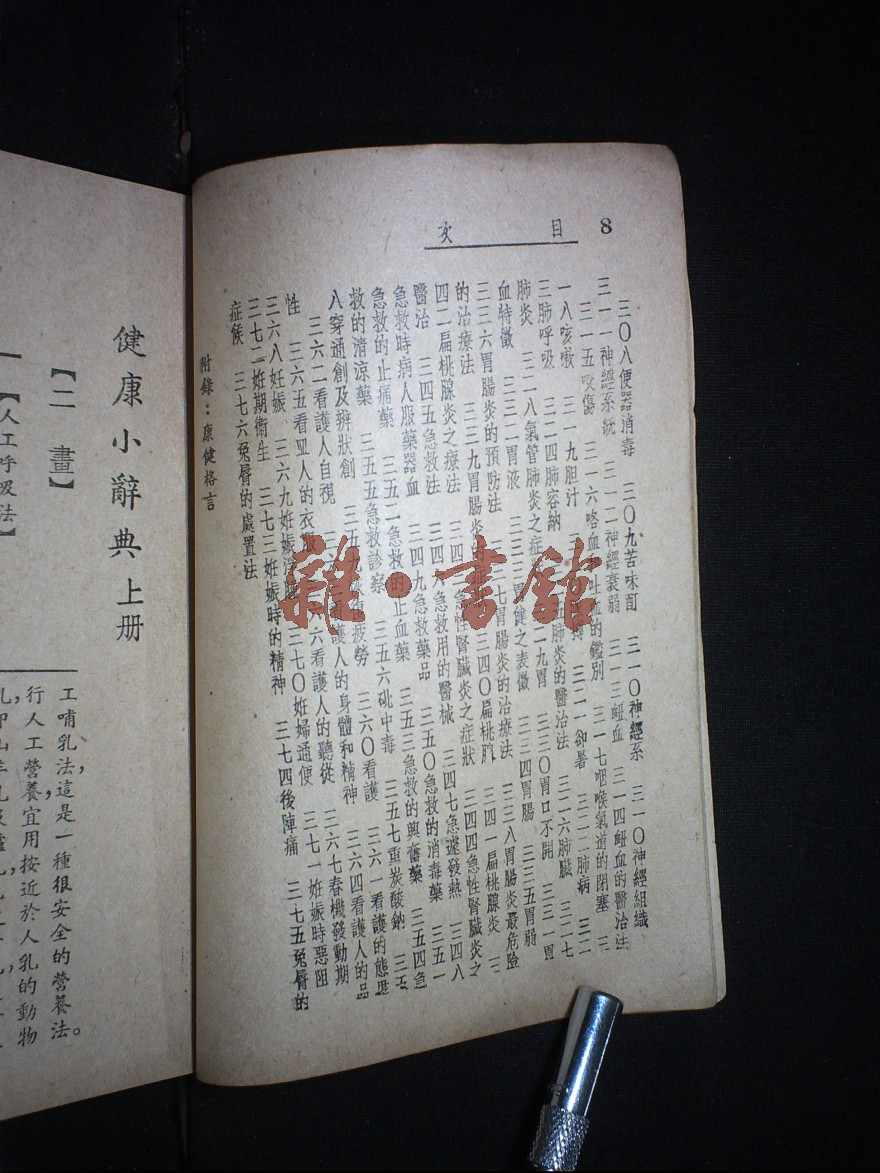 8
目 次
三〇八便器消毒 三〇九苦味酊 三一〇神經系 三一〇神經組織
三一一神經系統 三一二神經衰弱 三一三衄血 三一四衄血的醫治法
三一五咬傷 三一六咯血和吐血的鑑別 三一七咽喉氣道的閉塞 三
一八咳嗽 三一九胆汁 三二一卻暑 三二二肺病 三二
三肺呼吸 三二四肺容納 肺炎的醫治法 三二六肺臟 三二七
肺炎 三二八氣管肺炎之症 二九胃 三三〇胃口不開 三三一胃
血特徵 三三二胃液 三三三胃健之表徵 三三四胃腸 三三五胃弱
三三六胃腸炎的預防法 七胃腸炎的治療法 三三八胃腸炎最危險
的治療法 三三九胃腸炎的 三四〇扁桃腺 三四一扁桃腺炎 三
四二扁桃腺炎之療法 三四三急性腎臟炎之症狀 三四四急性腎臟炎之
醫治 三四五急救法 三四六急救用的醫械 三四七急遽發熱 三四八
急救時病人服藥器皿 三四九急救藥品 三五〇急救的消毒藥 三五一
急救的止痛藥 三五二急救的止血藥 三五三急救的興奮藥 三五四急
救的清涼藥 三五五急救診察 三五六砒中毒 三五七重炭酸鈉 三五
八穿通創及辨狀創 三五九恢復疲勞 三六〇看護 三六一看護的態度
三六二看護人自視 三六三看護人的身體和精神 三六四看護人的品
性 三六五看皿人的衣服 三六六看護人的聽從 三六七春機發動期
三六八妊娠 三六九妊娠浮腫 三七〇妊婦通便 三七一妊娠時惡阻
三七二妊期衛生 三七三妊娠時的精神 三七四後陣痛 三七五兔脣的
症候 三七六兔脣的處置法
附錄：康健格言
雜·書館
健康小辭典上册
【二畫】
【人工呼吸法】
工哺乳法，這是一種很安全的營養法。
行人工營養宜用按近於人乳的動物